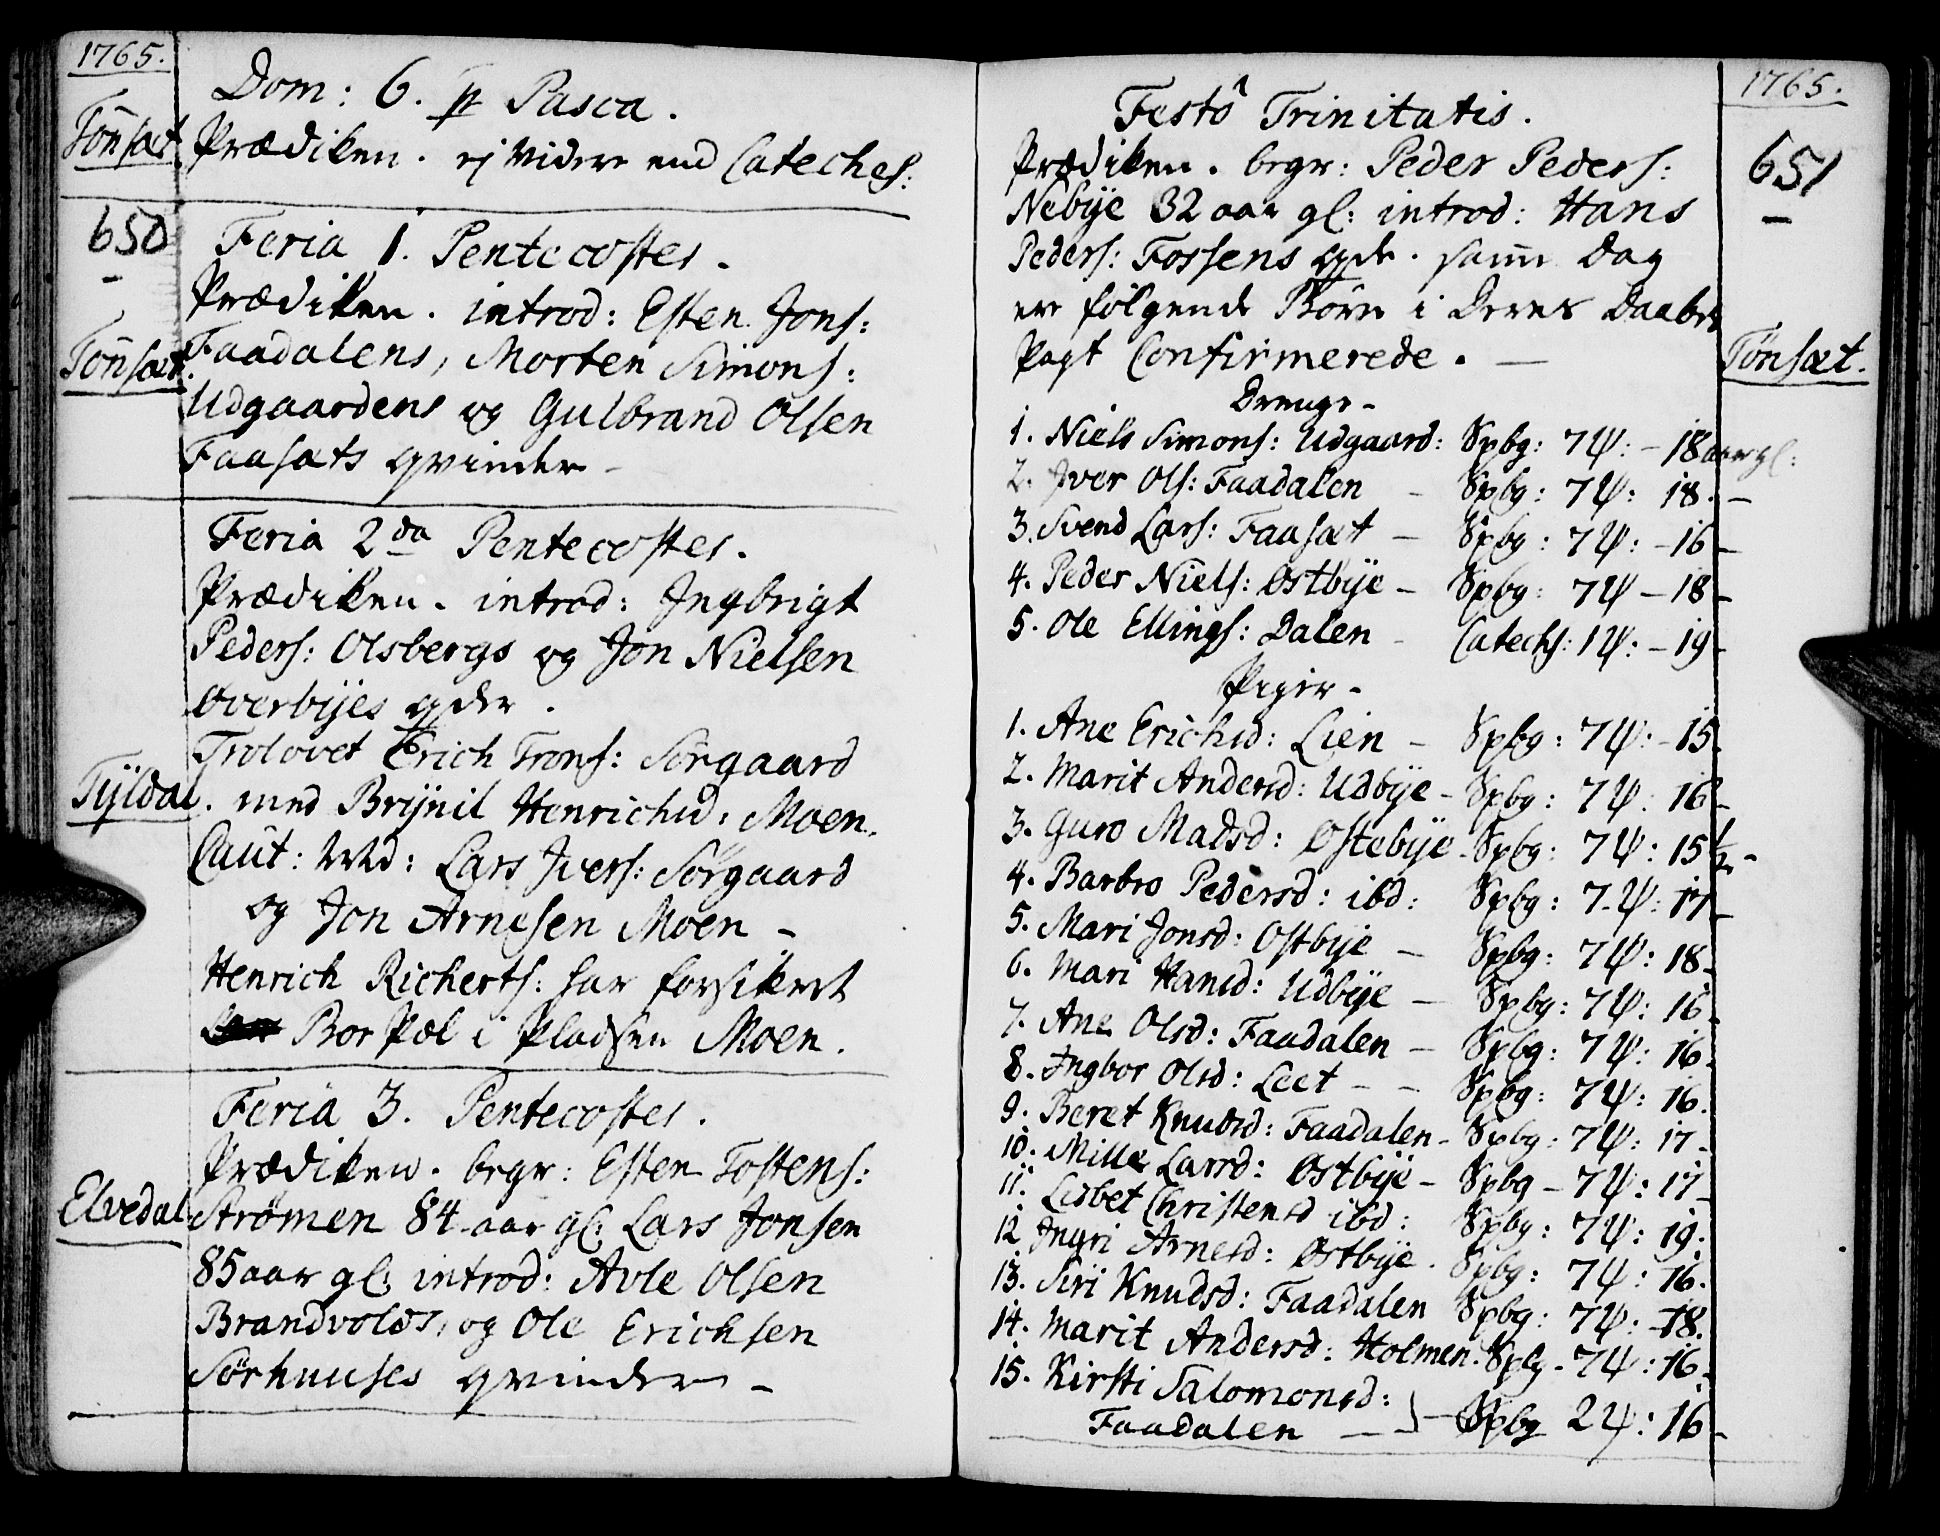 1765.
Dom: 6. p Pasca.
Tönsæt
Prædiken. ej videre end Cateches:
650
Feria 1. Pentecostes.
Prædiken. introd: Esten Jons:
Tönsæt.
Faadalens, Morten Simons:
Udgaardens og Gulbrand Olsen
Faasæts qvinder -
Feria 2da Pentecostes.
Prædiken. introd: Ingbrigt
Peders: Olsbergs og Jon Nielsen
Øverbÿes qder.
Trolovet Erich Trons: Sörgaard
Tÿldal.
med Brÿnil Henrichsd: Moen.
Caut: Lars Ivers: Sörgaard
og Jon Arnesen Moen -
Henrich Richerts: har forsikret
Bor Pæl i Pladsen Moen.
Feria 3. Pentecostes.
Prædiken. begr: Esten Tostens:
Elvedal
Strømen 84 aar gl: Lars Jonsen
85 aar gl: introd: Avle Olsen
Brandvolds, og Ole Erichsen
Sörhuuses qvinder -
1765.
Festô Trinitatis.
651
Prædiken. begr: Peder Peders:
Nebÿe 32 aar gl: introd: Hans
Peders: Fossens qde. samme Dag
ere følgende Börn i Deres Daabes
Tönsæt.
Pagt Confirmerede. —
Drenge -
1. Niels Simons: Udgaard: Spbg: 7Ψ: - 18 aar gl:
2. Iver Ols: Faadalen - Spbg: 7Ψ: 18. -
3. Svend Lars: Faasæt - Spbg: 7Ψ: - 16 -
4. Peder Niels: Østbÿe - Spbg: 7Ψ - 18 -
5. Ole Ellings: Dalen - Catechs: 1Ψ: - 19 -
Piger -
1. Ane Erichsd: Lien - Spbg: 7Ψ: - 15.
2. Marit Andersd: Udbÿe - Spbg: 7Ψ: 16 -
3. Guro Madsd: Østebÿe - Spbg: 7Ψ: 15 1/2 -
4. Barbro Pedersd: ibd: Spbg: 7.Ψ: 17 -
5. Mari Jonsd: Østbÿe - Spbg: 7Ψ: 18 -
6. Mari Hansd: Udbÿe - Spbg: 7Ψ: 16 -
7. Ane Olsd: Faadalen - Spbg: 7Ψ: 16.
8. Ingbor Olsd: Leet - - Spbg: 7Ψ: 16.
9. Beret Knudsd: Faadalen - Spbg: 7Ψ: 17 -
10. Mille Larsd: Østbÿe - Spbg - 7Ψ: 17 -
11. Lisbet Christensd ibd: Spbg: 7Ψ: 19.
12 Ingri Arnesd: Østbÿe. Spbg: 7Ψ: 16.
13. Siri Knudsd: Faadalen Spbg: 7Ψ: - 18.
14. Marit Andersd: Holmen. Spbg - 7Ψ: 16 -
15. Kirsti Salomonsd:
Faadalen - - } - Spbg 2Ψ: 16 -